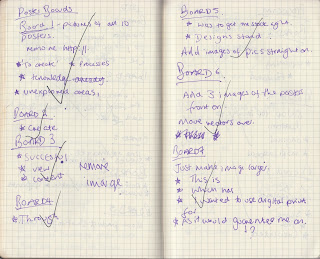 Poster Boards
Board 1 - pictures 4 and 10
posters.
remove http://
* To create * Processes
* Knowledge
* unexplored areas,
Board 2
* Create
Board 3
* Success
* view
* content
remove
image
Board 4
* Through
Board 5
* was to get
* Designs stand
Add images of pics straight on.
Board 6
Add 3 images of the posters
front on
Move vectors over.
Board 7
Just makes image larger.
* This is
* When has
* I wanted to use digital print
for
* As it would guarantee me an
!?